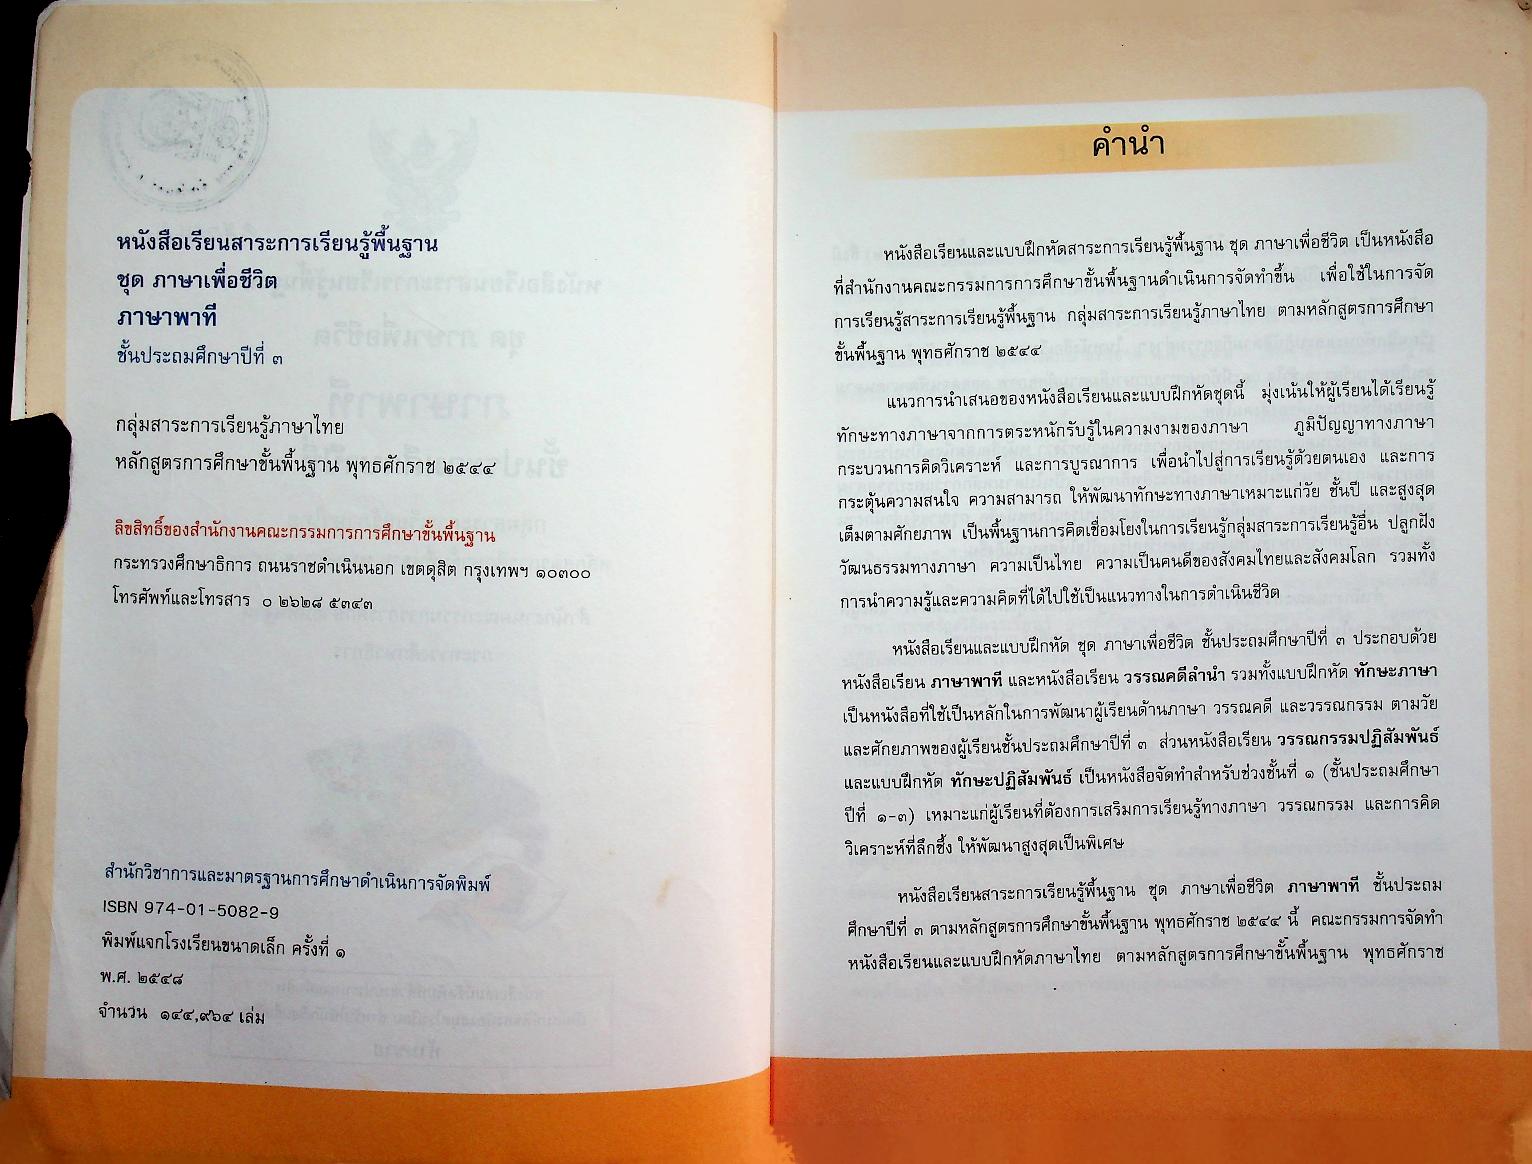 หนังสือเรียนสาระการเรียนรู้พื้นฐาน
ชุด ภาษาเพื่อชีวิต
ภาษาพาที
ชั้นประถมศึกษาปีที่ ๓
กลุ่มสาระการเรียนรู้ภาษาไทย
หลักสูตรการศึกษาขั้นพื้นฐาน พุทธศักราช ๒๕๔๔
ลิขสิทธิ์ของสำนักงานคณะกรรมการการศึกษาขั้นพื้นฐาน
กระทรวงศึกษาธิการ ถนนราชดำเนินนอก เขตดุสิต กรุงเทพฯ ๑๐๓๐๐
โทรศัพท์และโทรสาร ๐ ๒๖๒๘ ๕๓๔๓
สำนักวิชาการและมาตรฐานการศึกษาดำเนินการจัดพิมพ์
ISBN 974-01-5082-9
พิมพ์แจกโรงเรียนขนาดเล็ก ครั้งที่ ๑
พ.ศ. ๒๕๔๘
จำนวน ๑๔๔,๙๖๔ เล่ม
คำนำ
หนังสือเรียนและแบบฝึกหัดสาระการเรียนรู้พื้นฐาน ชุด ภาษาเพื่อชีวิต เป็นหนังสือ
ที่สำนักงานคณะกรรมการการศึกษาขั้นพื้นฐานดำเนินการจัดทำขึ้น เพื่อใช้ในการจัด
การเรียนรู้สาระการเรียนรู้พื้นฐาน กลุ่มสาระการเรียนรู้ภาษาไทย ตามหลักสูตรการศึกษา
ขั้นพื้นฐาน พุทธศักราช ๒๕๔๔
แนวการนำเสนอของหนังสือเรียนและแบบฝึกหัดชุดนี้ มุ่งเน้นให้ผู้เรียนได้เรียนรู้
ทักษะทางภาษาจากการตระหนักรับรู้ในความงามของภาษา ภูมิปัญญาทางภาษา
กระบวนการคิดวิเคราะห์ และการบูรณาการ เพื่อนำไปสู่การเรียนรู้ด้วยตนเอง และการ
กระตุ้นความสนใจ ความสามารถ ให้พัฒนาทักษะทางภาษาเหมาะแก่วัย ชั้นปี และสูงสุด
เต็มตามศักยภาพ เป็นพื้นฐานการคิดเชื่อมโยงในการเรียนรู้กลุ่มสาระการเรียนรู้อื่น ปลูกฝัง
วัฒนธรรมทางภาษา ความเป็นไทย ความเป็นคนดีของสังคมไทยและสังคมโลก รวมทั้ง
การนำความรู้และความคิดที่ได้ไปใช้เป็นแนวทางในการดำเนินชีวิต
หนังสือเรียนและแบบฝึกหัด ชุด ภาษาเพื่อชีวิต ชั้นประถมศึกษาปีที่ ๓ ประกอบด้วย
หนังสือเรียน ภาษาพาที และหนังสือเรียน วรรณคดีลำนำ รวมทั้งแบบฝึกหัด ทักษะภาษา
เป็นหนังสือที่ใช้เป็นหลักในการพัฒนาผู้เรียนด้านภาษา วรรณคดี และวรรณกรรม ตามวัย
และศักยภาพของผู้เรียนชั้นประถมศึกษาปีที่ ๓ ส่วนหนังสือเรียน วรรณกรรมปฏิสัมพันธ์
และแบบฝึกหัด ทักษะปฏิสัมพันธ์ เป็นหนังสือจัดทำสำหรับช่วงชั้นที่ ๑ (ชั้นประถมศึกษา
ปีที่ ๑-๓) เหมาะแก่ผู้เรียนที่ต้องการเสริมการเรียนรู้ทางภาษา วรรณกรรม และการคิด
วิเคราะห์ที่ลึกซึ้ง ให้พัฒนาสูงสุดเป็นพิเศษ
หนังสือเรียนสาระการเรียนรู้พื้นฐาน ชุด ภาษาเพื่อชีวิต ภาษาพาที ชั้นประถม
ศึกษาปีที่ ๓ ตามหลักสูตรการศึกษาขั้นพื้นฐาน พุทธศักราช ๒๕๔๔ นี้ คณะกรรมการจัดทำ
หนังสือเรียนและแบบฝึกหัดภาษาไทย ตามหลักสูตรการศึกษาขั้นพื้นฐาน พุทธศักราช